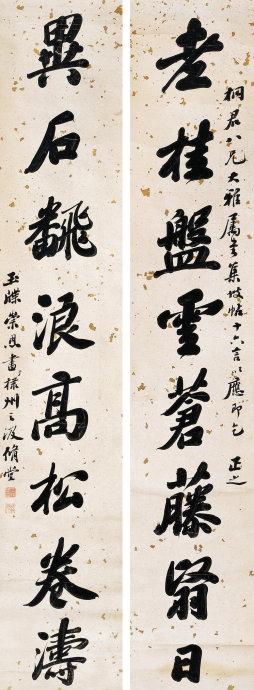 老桂盤雲蒼藤翳日
桐君八兄大雅屬書集坡帖十六言以應即乞 正之
異石飜浪高松卷濤
玉牒崇恩書 州之 堂